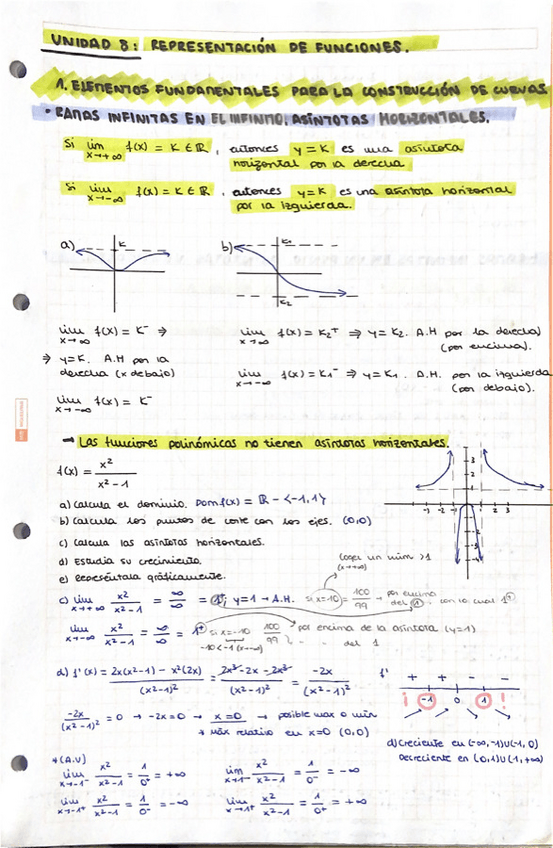 UNIDAD 8: REPRESENTACIÓN DE FUNCIONES.
1. ELEMENTOS FUNDAMENTALES PARA LA CONSTRUCCIÓN DE CURVAS
• RAMAS INFINITAS EN EL INFINITO. ASÍNTOTAS HORIZONTALES.
Si lim x→+∞ f(x) = K ∈ ℝ, entonces y = K es una asíntota
horizontal por la derecha
Si lim x→-∞ f(x) = K ∈ ℝ, entonces y=K es una asíntota horizontal
por la izquierda.
a) K
b) K₁
K₂
lim x→∞ f(x) = K⁻ ⇒
⇒ y=K. A.H por la
derecha (x debajo)
lim x→-∞ f(x) = K⁻
lim x→∞ f(x) = K₂⁺ ⇒ y = K₂. A.H por la derecha
(por encima).
lim x→-∞ f(x) = K₁⁻ ⇒ y = K₁. A.H. por la izquierda
(por debajo).
→ Las funciones polinómicas no tienen asíntotas horizontales.
f(x) = x²/(x²-1)
a) Calcula el dominio. Dom f(x) = ℝ - {-1,1}
b) Calcula los puntos de corte con los ejes. (0,0)
c) Calcula las asíntotas horizontales.
d) Estudia su crecimiento.
e) Represéntala gráficamente.
coger un núm >1
(x→+∞)
c) lim x→+∞ x²/(x²-1) = ∞/∞ = 1⁺; y=1 → A.H. si x=10 = 100/99 → por encima del 1, con lo cual 1⁺
lim x→-∞ x²/(x²-1) = ∞/∞ = 1⁺ si x=-10 100/99 por encima de la asíntota (y=1)
-10 < -1 (x→-∞) del 1
d) f'(x) = (2x(x²-1) - x²(2x))/(x²-1)² = (2x³-2x-2x³)/(x²-1)² = -2x/(x²-1)²
f' + + - -
¡ -1 0 1 !
-2x/(x²-1)² = 0 → -2x=0 → x=0 → posible max o min
→ Máx relativo en x=0 (0,0)
d) Creciente en (-∞,-1)U(-1,0)
Decreciente en (0,1)U(1,+∞)
*(A.V)
lim x→-1⁻ x²/(x²-1) = 1/0⁺ = +∞
lim x→1⁻ x²/(x²-1) = 1/0⁻ = -∞
lim x→-1⁺ x²/(x²-1) = 1/0⁻ = -∞
lim x→1⁺ x²/(x²-1) = 1/0⁺ = +∞